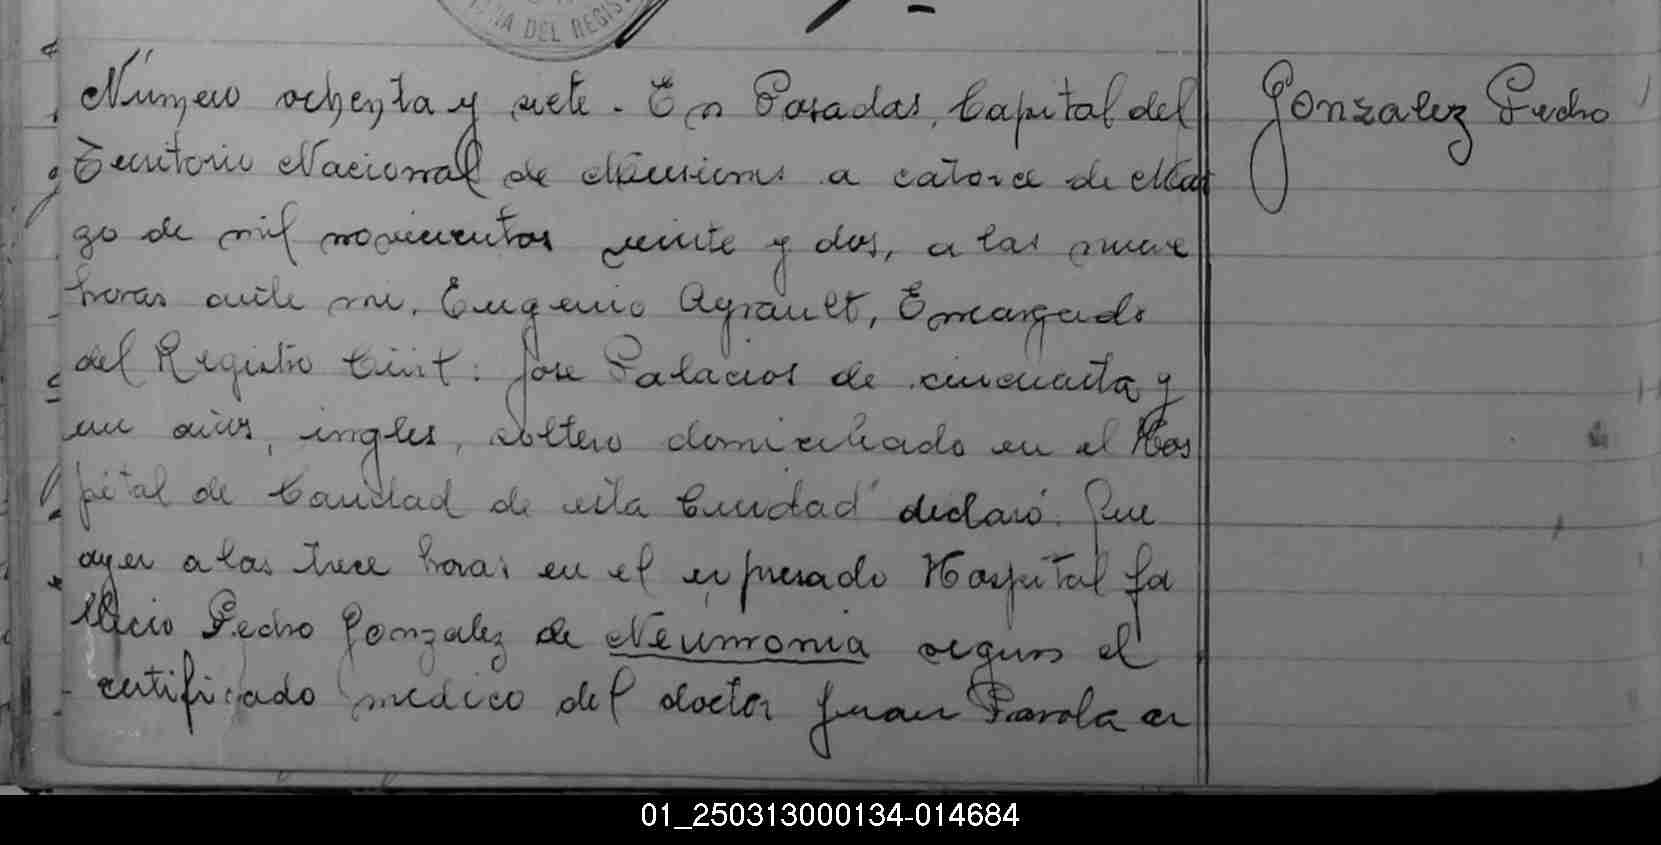 NA DEL REGIS
Número ochenta y siete. En Posadas, Capital del
Gonzalez Pedro
Territorio Nacional de Misiones a catorce de Mar
zo de mil novecientos veinte y dos, a las nueve
horas ante mi, Eugenio Ayrault, Encargado
del Registro Civil: Jose Palacios de cincuenta y
un años, ingles, soltero domiciliado en el Hos
pital de Caridad de esta Ciudad declaró: Que
ayer a las trece horas en el expresado Hospital fa
llecio Pedro Gonzalez de Neumonia segun el
certificado medico del doctor Juan Parola er
01_250313000134-014684